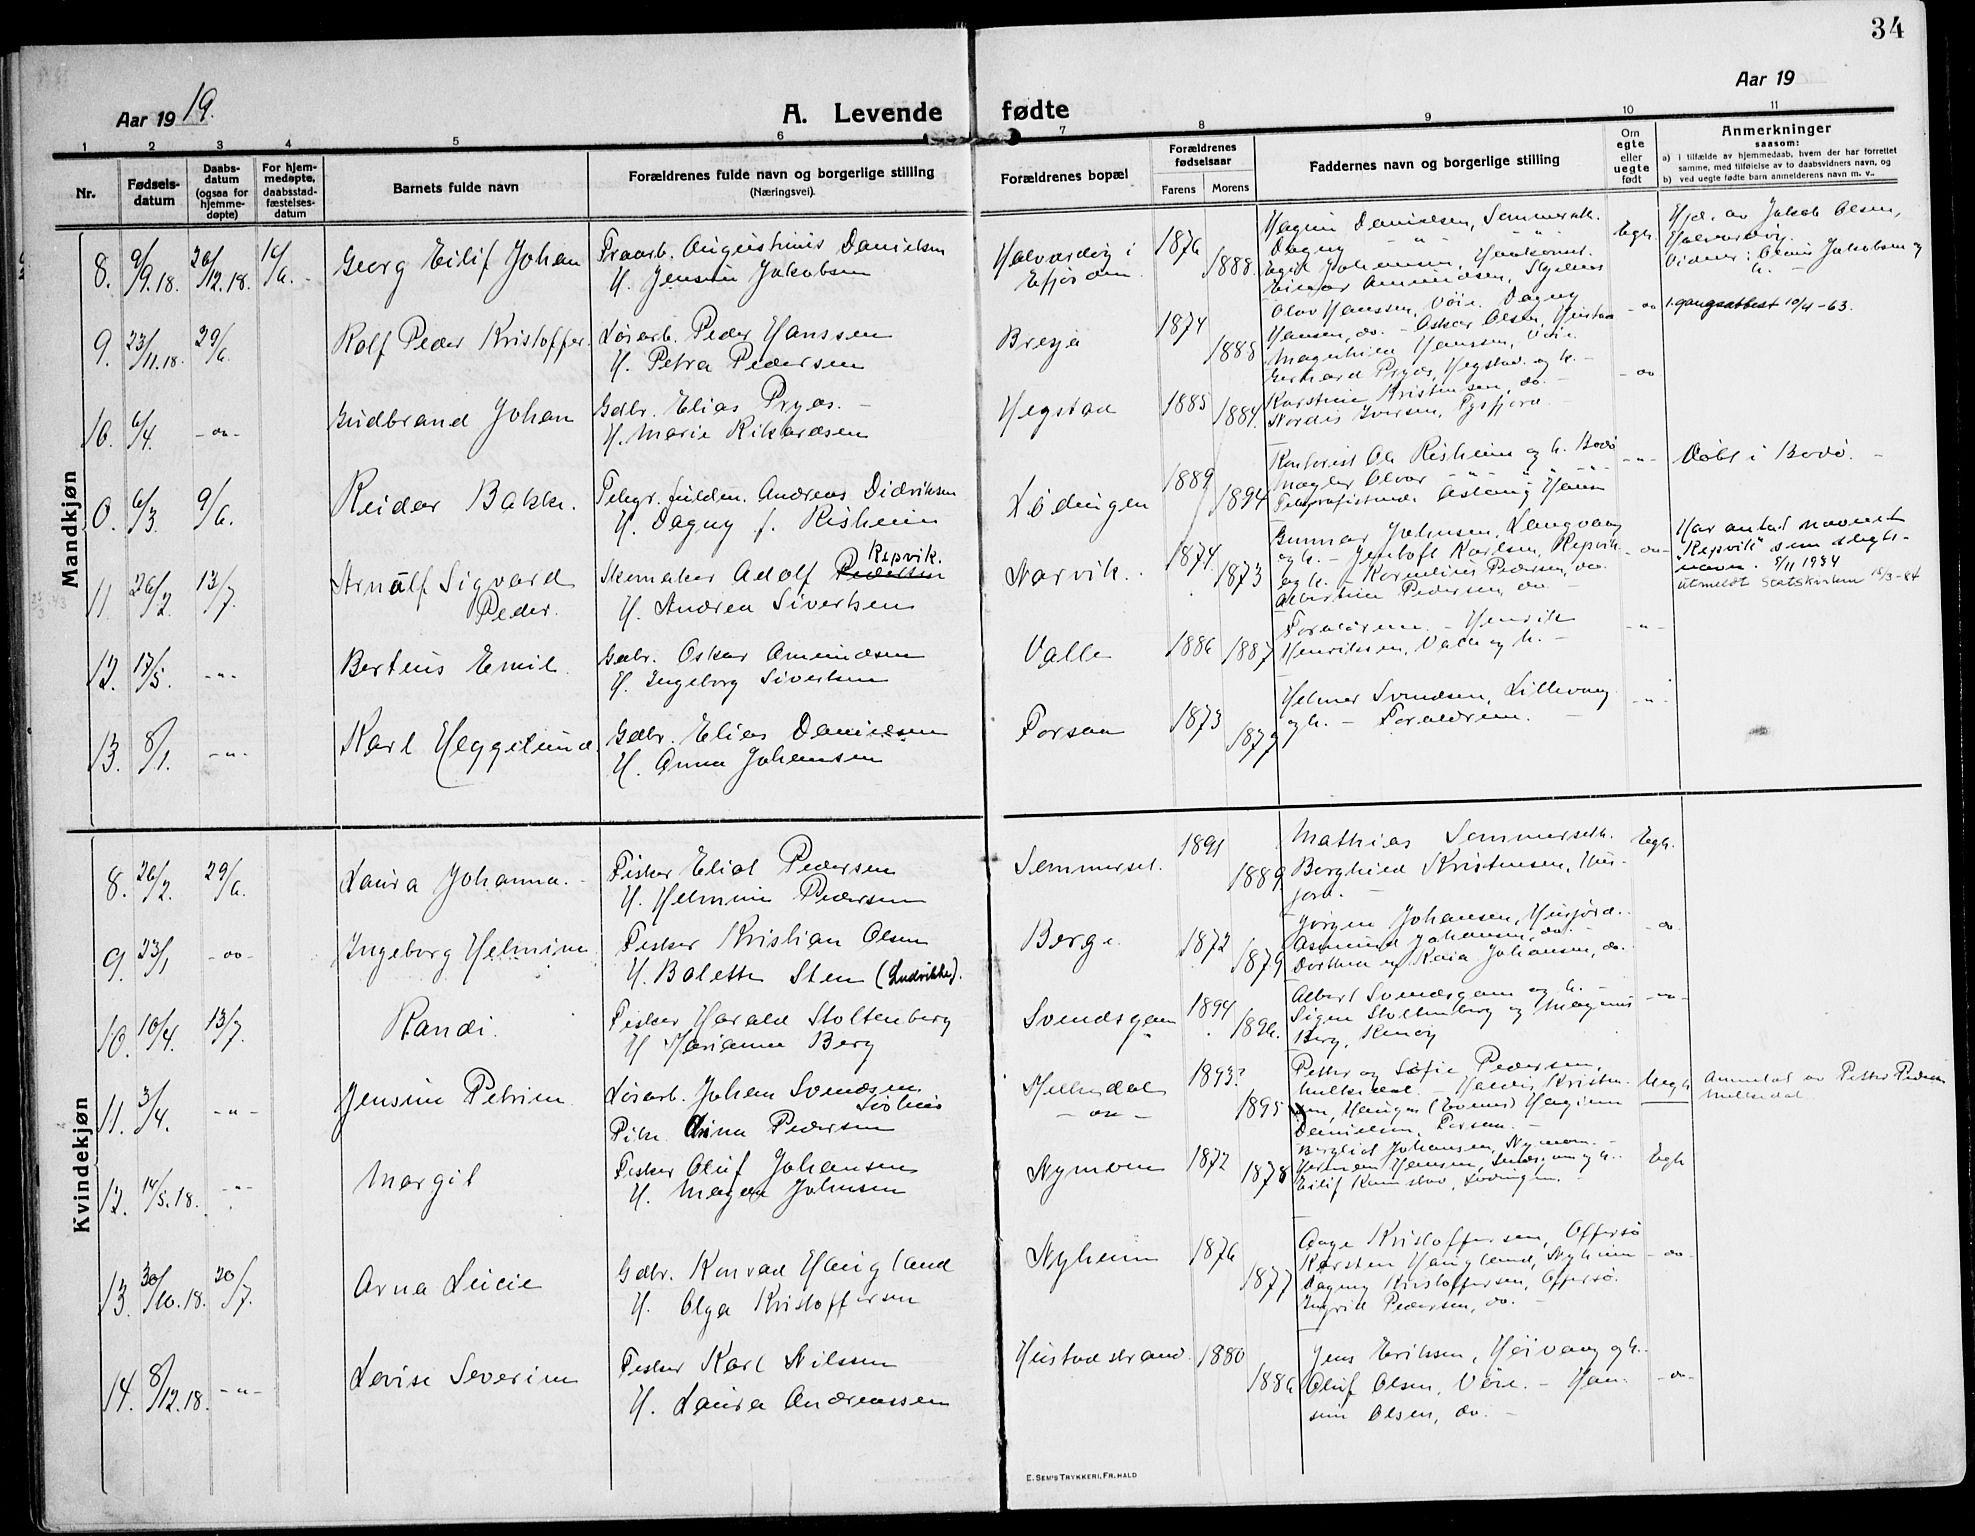 34
Aar 1919.
A. Levende fødte
Aar 19
1 2 3 4 5 6 7 8 9 10 11
Nr.
Fødsels-
datum
Daabs-
datum
(ogsaa for
hjemme-
døpte)
For hjem-
medøpte,
daabsstad-
fæstelses-
datum
Barnets fulde navn
Forældrenes fulde navn og borgerlige stilling
(Næringsvei).
Forældrenes bopæl
Forældrenes
fødselsaar
Farens Morens
Faddernes navn og borgerlige stilling
Om
egte
eller
uegte
født
Anmerkninger
saasom:
a) i tilfælde av hjemmedaab, hvem der har forrettet
samme, med tilføielse av to daabsvidners navn, og
b) ved uegte fødte barn anmelderens navn m. v..
Mandkjøn
8. 9/9.18. 26/12.18. Georg Eilif Johan
Augustinus Danielsen
H. Jensine Jakobsen
Halvardøy i
Efjorden
1876 1888
Hagin Danielsen, Semmerseth.
Dagny " "
Egil Johansen,
Einar Amundsen,
Egte.
Hjd. av Jakob Olsen,
Halvardøy.
Vidner: Olaus Jakobsen og
h. -
9. 23/11.18. 29/6. Rolf Peder Kristoffer.
Løsarb. Peder Hanssen
H. Petra Pedersen
Bresja
1874 1888
Olav Hanssen, Voie. Dagny
Hansen, do. - Oskar Olsen, Hustad
Magnhild Hanssen, Voie.
- do
1. gangsattest 10/4-63.
10. 6/4. -do- Gudbrand Johan
Gdbr. Elias Pryds. -
H. Marie Rikardsen
Hegstad
1885 1884.
Gerhard Pryds, Hegstad og h. -
Karstine Kristensen, do. -
Nordis Iversen, Tysfjord. -
- do
0. 6/3. 9/6. Reidar Bakke.
Telegr. fuldm. Andreas Didriksen
H. Dagny f. Risheim
Lødingen
1889 1894
Kontorist Ole Risheim og h. Bodø
Aslaug Hansen
- " -
Døbt i Bodø. -
11. 26/2. 13/7. Arnulf Sigvard
Peder.
Skomaker Adolf Pedersen Repvik.
H. Andrea Sivertsen
Narvik.
1874 1873
Gunnar Johnsen, Langvang
og h. - Jentoft Karlsen, Repvik
og h. - Kornelius Pedersen, do.
Albertine Pedersen, do -
-do-
Har antat navnet
"Repvik" som slegts-
navn. 8/11 1934
Utmeldt Statskirken 15/3-84
12. 17/5. -"- Bertius Emil.
Gdbr. Oskar Amundsen
H. Ingeborg Sivertsen
Valle
1886 1887
Forældrene - Henrik
Henriksen, Valle og h. -
- " -
13. 8/1. -"- Karl Heggelund.
Gdbr. Elias Danielsen
H. Anna Johansen
Forsaa
1873 1877
Helmer Svendsen, Lillevang
og h. - Forældrene. -
- " -
Kvindekjøn
8. 26/2. 29/6. Laura Johanna. -
Fisker Eliot Pedersen
H. Helmine Pedersen
Semmerset.
1891 1889
Mathias Semmerseth.
Borghild Kristensen, Hus-
jord. -
Egte.
9. 23/1 -do- Ingeborg Helmine
Fisker Kristian Olsen
H. Bolette Sten (Ludvikke).
Berge.
1872 1879
Jørgen Johansen, Husjord.
Asmund Johansen, do. -
Dorthea og Kaia Johansen, do.
- do.
10. 10/4. 13/7. Randi.
Fisker Harald Stoltenberg
H. Marianne Berg
Svendsgam
1894 1896.
Albert Svendsgam og h. -
Signe Stoltenberg og Magnus
Berg,
-"-
11. 3/4. -"- Jensine Petrine
Løsarb. Johan Svendsen
Pike Anna Pedersen
- do -
1893? 1895
Petter og Sofie Pedersen,
Danielsen, Forsaa. -
Uegte
Anmeldt av Petter Pedersen
12. 14/5.18. -"- Margit
Fisker Oluf Johansen
H. Magna Johnsen
Nymoen
1872 1878
Bergliot Johansen, Nymoen. -
Hermann Hansen,
Eilif Lødingen. -
Egte
13. 30/10.18. 20/7. Arna Lucie
Gdbr. Konrad Haugland
H. Olga Kristoffersen
Nyheim
1876 1877
Aage Kristoffersen, Offersø
Karsten Haugland, Nyheim
Dagny Kristoffersen, Offersø.
Ingrid Pedersen, do. -
-do-
14. 8/12.18. -"- Lovise Severine
Fisker Karl Nilssen
H. Laura Andreassen
Hustadstrand.
1880 1886
Jens Eriksen, Høivang og h.
Oluf Olsen, Voie. - Han-
sine Olsen, do. -
-do-
E. SEM'S TRYKKERI, FR. HALD